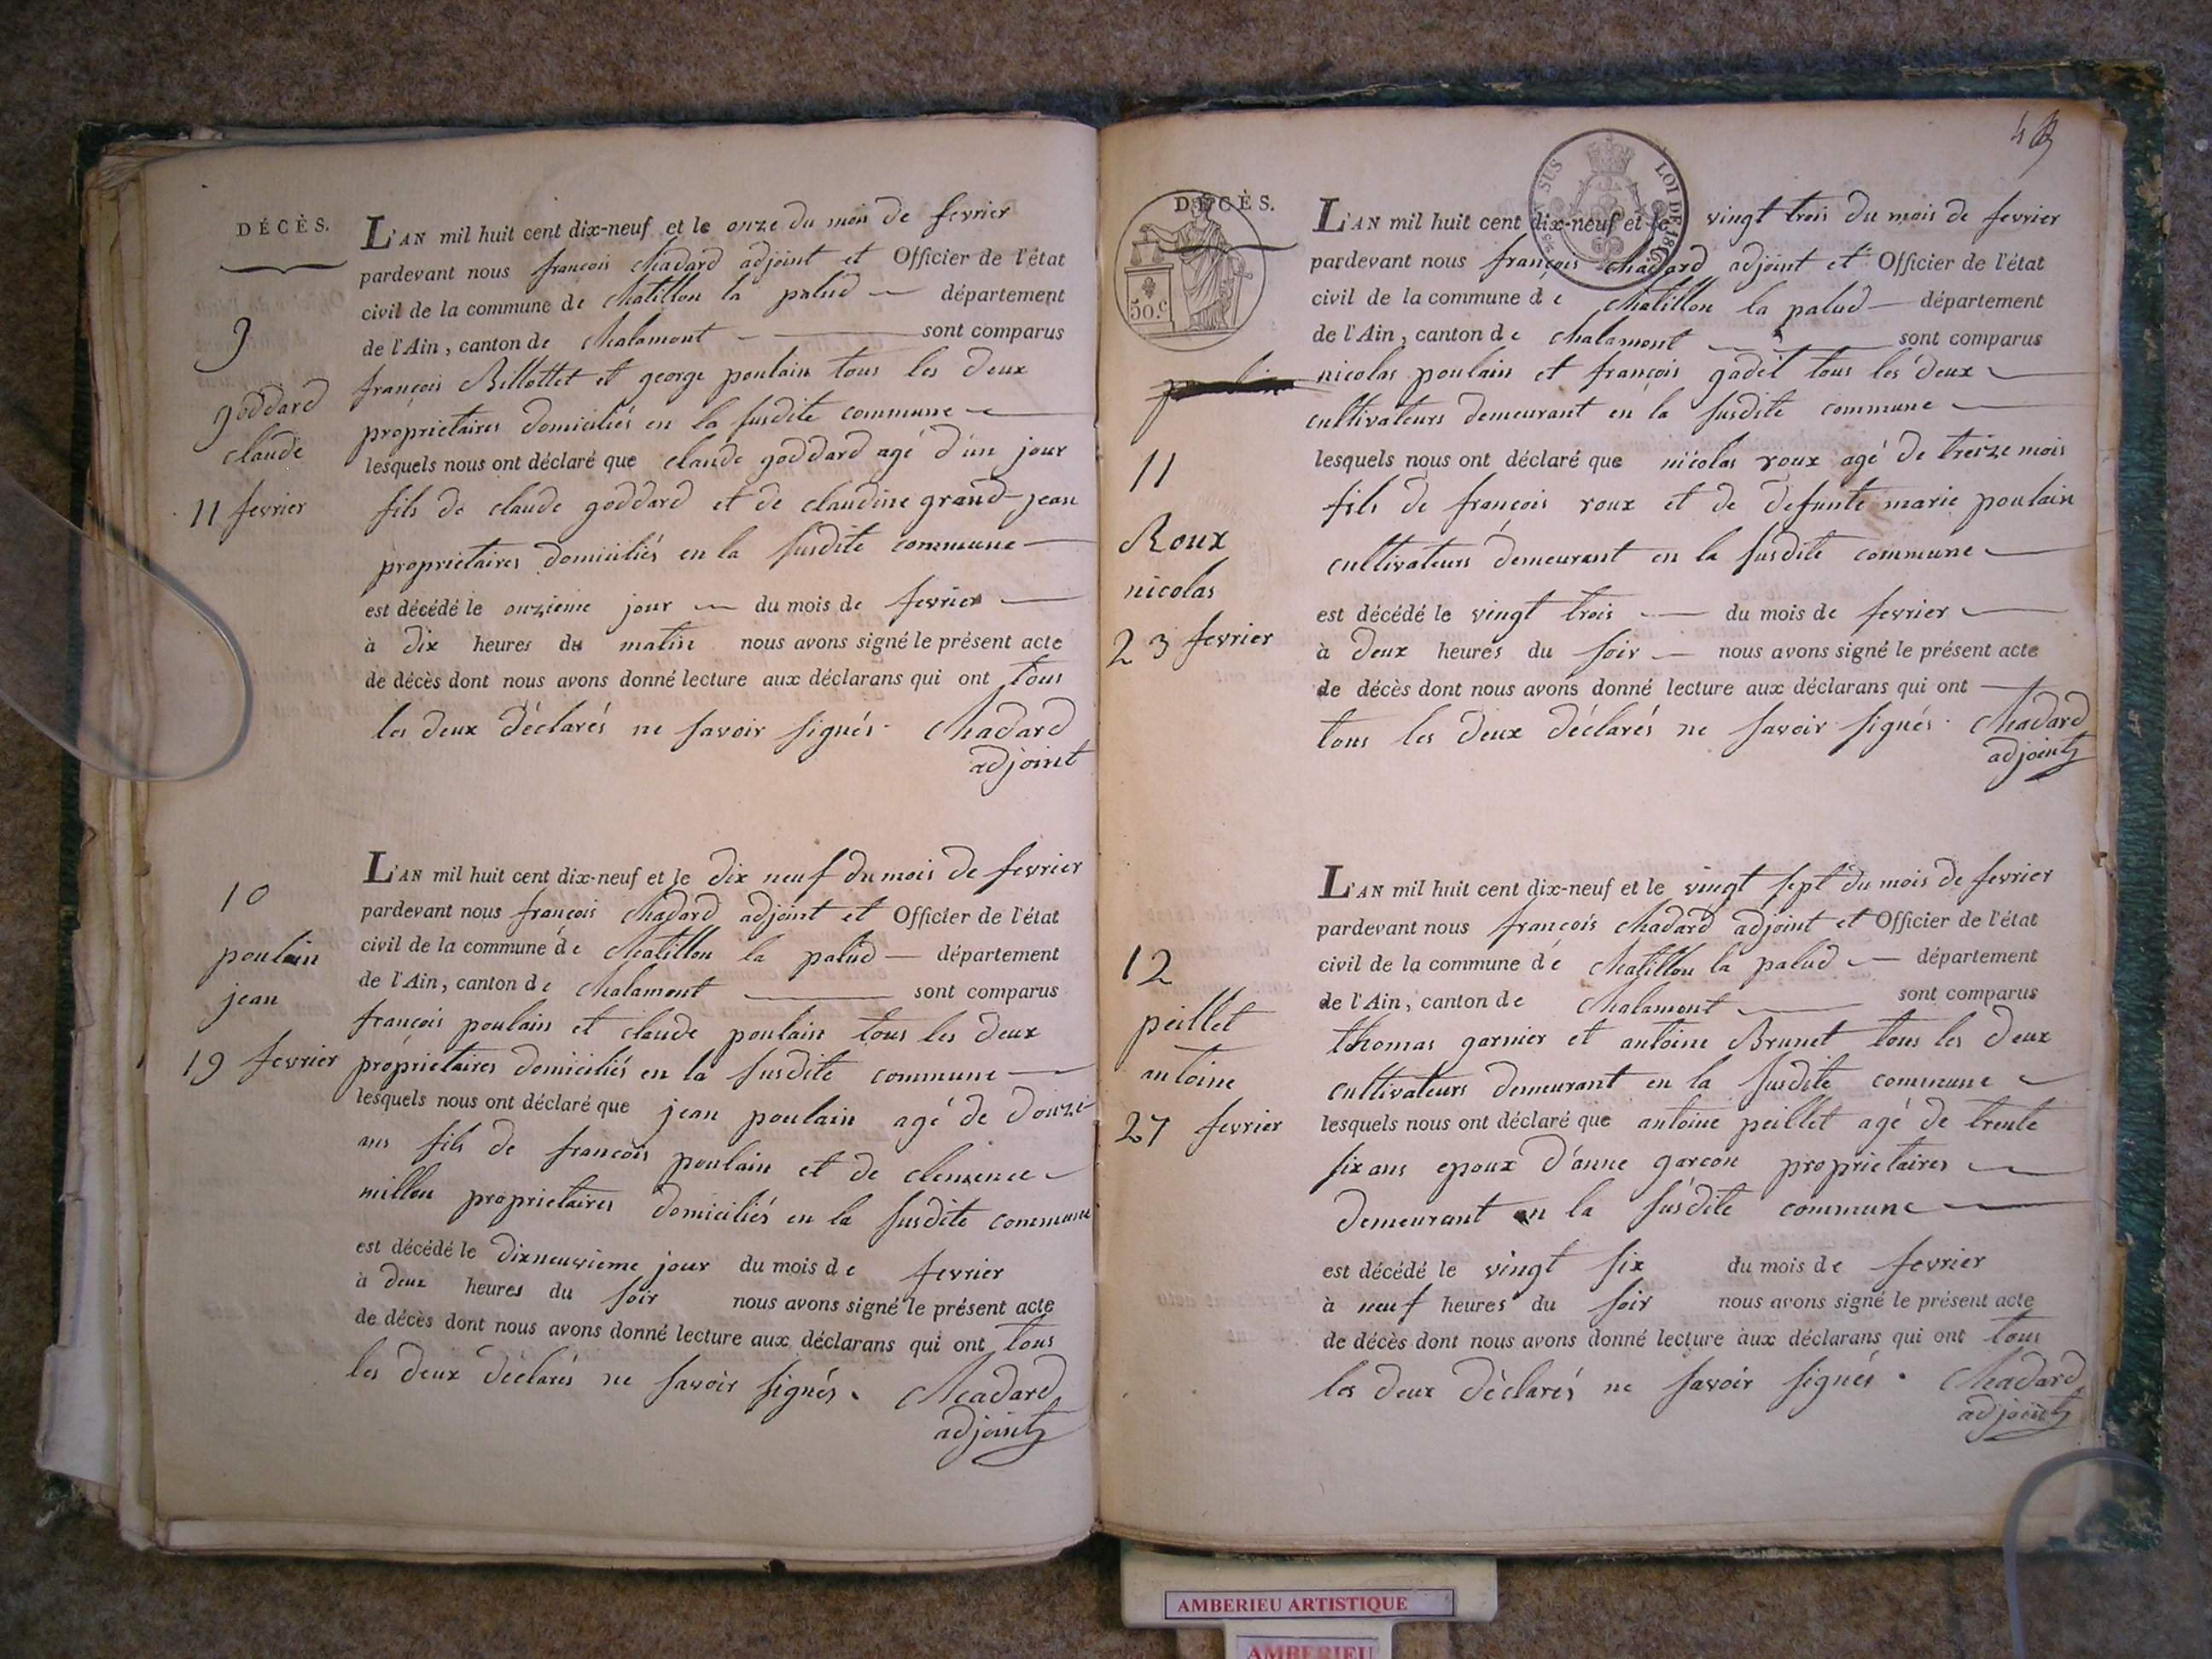 DÉCÈS.
9
goddard
claude
11 fevrier
L'AN mil huit cent dix-neuf et le onze du mois de fevrier
pardevant nous françois Chadard adjoint et Officier de l'état
civil de la commune de Chatillon la palud département
de l'Ain, canton de Chalamont sont comparus
françois Billottet et george poulain tous les deux
proprietaires domiciliés en la susdite commune
lesquels nous ont déclaré que claude goddard agé d'un jour
fils de claude goddard et de claudine grand-jean
proprietaires domiciliés en la susdite commune
est décédé le onzieme jour du mois de fevrier
à dix heures du matin nous avons signé le présent acte
de décès dont nous avons donné lecture aux déclarans qui ont tous
les deux déclarés ne savoir signés. Chadard
adjoint
10
poulain
jean
19 fevrier
L'AN mil huit cent dix-neuf et le dix neuf du mois de fevrier
pardevant nous françois Chadard adjoint et Officier de l'état
civil de la commune de Chatillon la palud département
de l'Ain, canton de Chalamont sont comparus
françois poulain et claude poulain tous les deux
proprietaires domiciliés en la susdite commune
lesquels nous ont déclaré que jean poulain agé de douze
ans fils de françois poulain et de clemence
millon proprietaires domiciliés en la susdite commune
est décédé le dixneuvieme jour du mois de fevrier
à deux heures du soir nous avons signé le présent acte
de décès dont nous avons donné lecture aux déclarans qui ont tous
les deux déclarés ne savoir signés. Chadard
adjoint
DÉCÈS.
50.c
SUS
LOI DE 1816
11
Roux
nicolas
23 fevrier
L'AN mil huit cent dix-neuf et le vingt trois du mois de fevrier
pardevant nous françois Chadard adjoint et Officier de l'état
civil de la commune de Chatillon la palud département
de l'Ain, canton de Chalamont sont comparus
nicolas poulain et françois gadet tous les deux
cultivateurs demeurant en la susdite commune
lesquels nous ont déclaré que nicolas roux agé de treize mois
fils de françois roux et de defunte marie poulain
cultivateurs demeurant en la susdite commune
est décédé le vingt trois du mois de fevrier
à deux heures du soir nous avons signé le présent acte
de décès dont nous avons donné lecture aux déclarans qui ont
tous les deux déclarés ne savoir signés. Chadard
adjoint
12
peillet
antoine
27 fevrier
L'AN mil huit cent dix-neuf et le vingt sept du mois de fevrier
pardevant nous françois Chadard adjoint et Officier de l'état
civil de la commune de Chatillon la palud département
de l'Ain, canton de Chalamont sont comparus
thomas garnier et antoine Brunet tous les deux
cultivateurs demeurant en la susdite commune
lesquels nous ont déclaré que antoine peillet agé de trente
six ans epoux d'anne garcon proprietaires
demeurant en la susdite commune
est décédé le vingt six du mois de fevrier
à neuf heures du soir nous avons signé le présent acte
de décès dont nous avons donné lecture aux déclarans qui ont tous
les deux déclarés ne savoir signés. Chadard
adjoint
AMBERIEU ARTISTIQUE
AMBERIEU